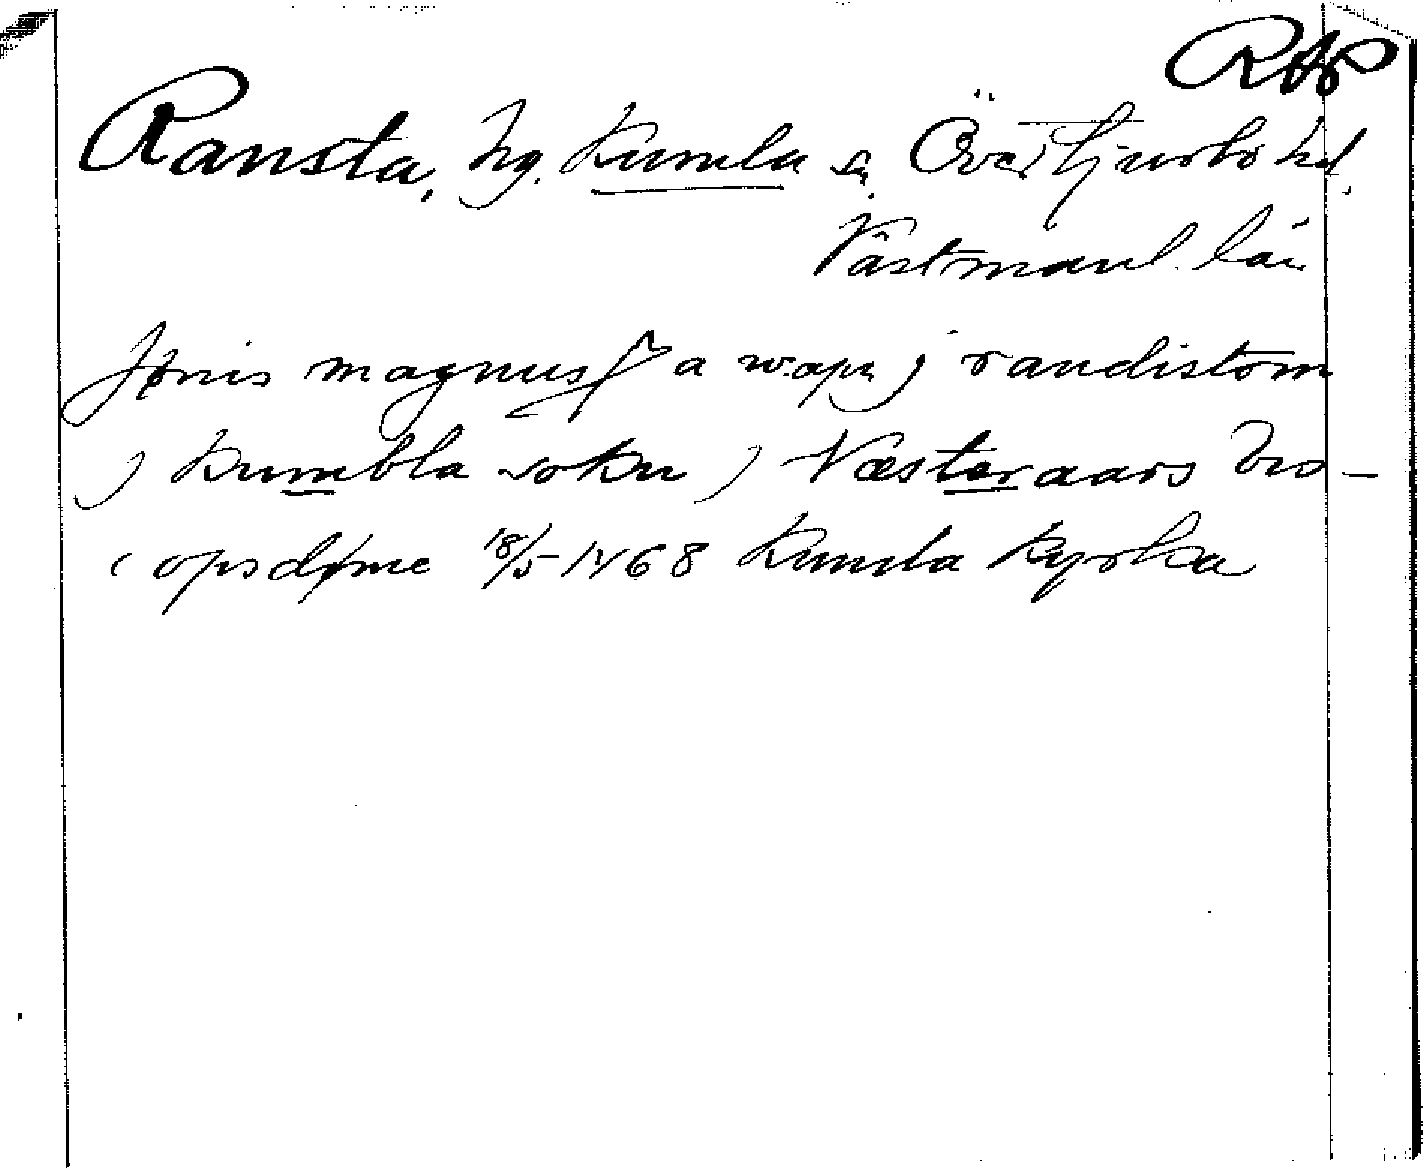 RAP
Ransta, hg. Kumla sn Övertjurbo hd.
Västmanl. län
Jønis magnus̄ a wapn j randistom
j Kumbla sokn j Væsteraars bis-
copsdøme 18/5 1468 Kumla kyrka